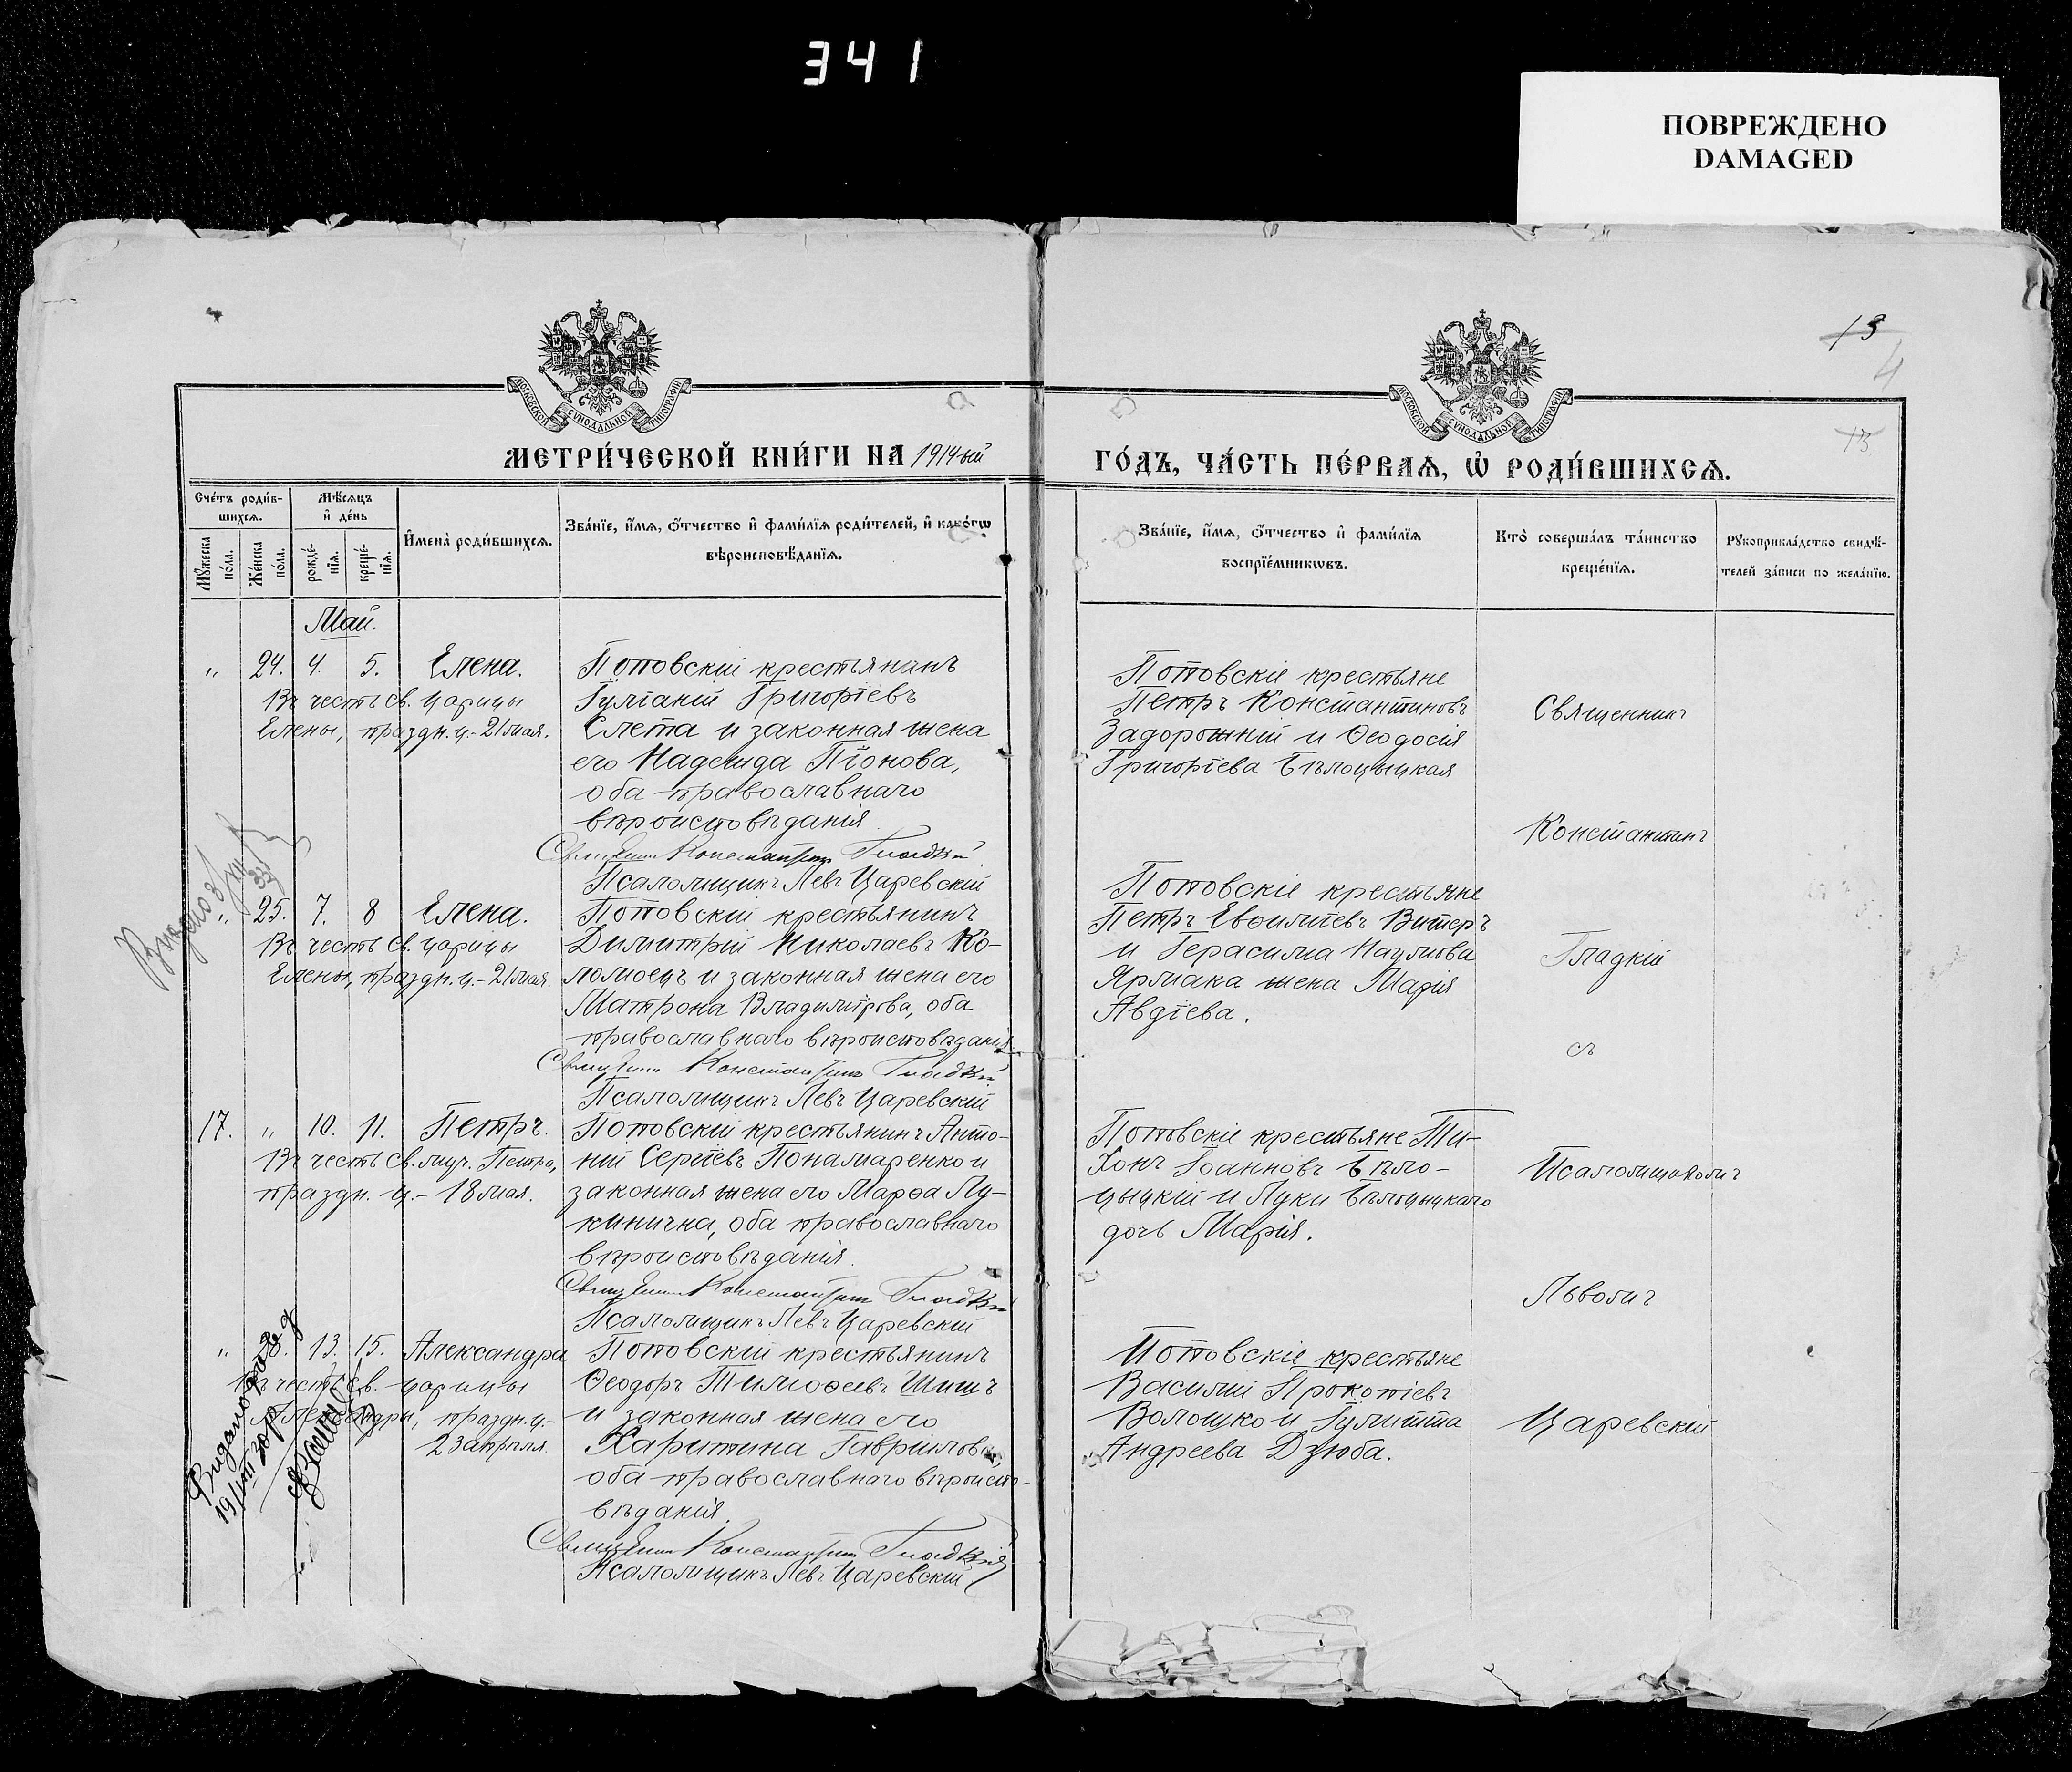 341
ПОВРЕЖДЕНО
DAMAGED
13
4
13
МОСКОВСКОЙ СѴНОДАЛЬНОЙ ТИПОГРАФІИ
МОСКОВСКОЙ СѴНОДАЛЬНОЙ ТИПОГРАФІИ
МЕТРИ́ЧЕСКОЙ КНИ́ГИ НА 1914ый
ГО́ДЪ, ЧА́СТЬ ПЕ́РВАѦ, Ѡ҆ РОДИ́ВШИХСѦ.
Сче́тъ роди́в-
шихсѧ.
Мѣ́сѧцъ
и҆ де́нь
Мꙋ́жеска
по́ла.
Же́нска
по́ла.
рожде́-
нїѧ.
креще́-
нїѧ.
И҆мена̀ роди́вшихсѧ.
Зва́нїе, и҆́мѧ, ѻ҆́тчество и҆ фами́лїѧ роди́телей, и҆ како́гѡ
вѣроисповѣ́данїѧ.
Зва́нїе, и҆́мѧ, ѻ҆́тчество и҆ фами́лїѧ
воспрїе́мникѡвъ.
Кто̀ соверша́лъ та́инство
креще́нїѧ.
Рꙋкоприкла́дство свидѣ́-
телей за́писи по жела́нїю.
Май.
" 24. 4. 5. Елена.
Въ честь св. царицы
Елены, праздн. ц.- 21 мая.
Поповскій крестьянинъ
Іуліаній Григоріевъ
Слепа и законная жена
его Надежда Піонова,
оба православнаго
вѣроисповѣданія.
Священн Константинъ Гладкій
Псаломщикъ Левъ Царевскій
Поповскіе крестьяне
Петръ Константиновъ
Задорожній и Ѳеодосія
Григоріева Бѣлоцыцкая
Священникъ
Константинъ
" 25. 7. 8 Елена.
Въ честь св. царицы
Елены, праздн. ц.- 21 мая.
Поповскій крестьянинъ
Димитрій Николаевъ Ко-
ломоецъ и законная жена его
Матрона Владимірова, оба
православнаго вѣроисповѣданія.
Священн Константинъ Гладкій
Псаломщикъ Левъ Царевскій
Поповскіе крестьяне
Петръ Евѳиміевъ Витеръ
и Герасима Наумова
Ярмака жена Марія
Авдіева.
Гладкій
съ
17. " 10. 11. Петръ.
Въ честь св. муч. Петра,
праздн. ц.- 18 мая.
Поповскій крестьянинъ Анто-
ній Сергіевъ Понамаренко и
законная жена его Марѳа Лу-
кинична, оба православнаго
вѣроисповѣданія.
Священн Константинъ Гладкій
Псаломщикъ Левъ Царевскій
Поповскіе крестьяне Ти-
хонъ Іоанновъ Бѣло-
цыцкій и Луки Бѣлоцыцкаго
дочь Марія.
Псаломщикомъ
Львомъ
" 13. 15. Александра
Въ честь св. царицы
Александры, праздн. ц.-
23 апрѣля.
Поповскій крестьянинъ
Ѳеодоръ Тимоѳеевъ Шишъ
и законная жена его
Харитина Гавріилова,
оба православнаго вѣроиспо-
вѣданія.
Священн Константинъ Гладкій
Псаломщикъ Левъ Царевскій
Поповскіе крестьяне
Василій Прокопіевъ
Волошко и Іулитта
Андреева Дзюба.
Царевскій